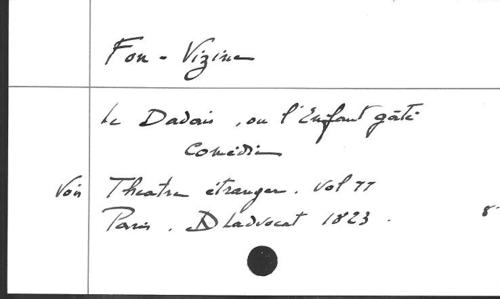 Fon-Vizine
Le Dadais, ou l'Enfant gâté
Comédie
Voir Theatre étranger. Vol 77
Paris. Dladvocat 1823.
8°